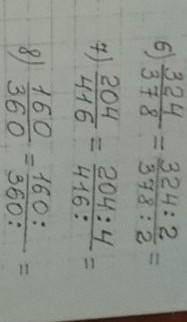 6) 324/378 = 324:2/378:2 =
7) 204/416 = 204:4/416: =
8) 160/360 = 160:/360: =